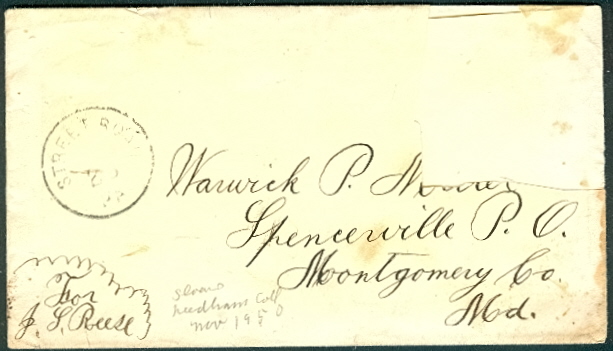 STREET ROAD
PA
Warwick P. Miller
Spencerville P. O.
Montgomery Co.
Md.
For
J. S. Reese
Sloane
Needham Coll
Nov 1950